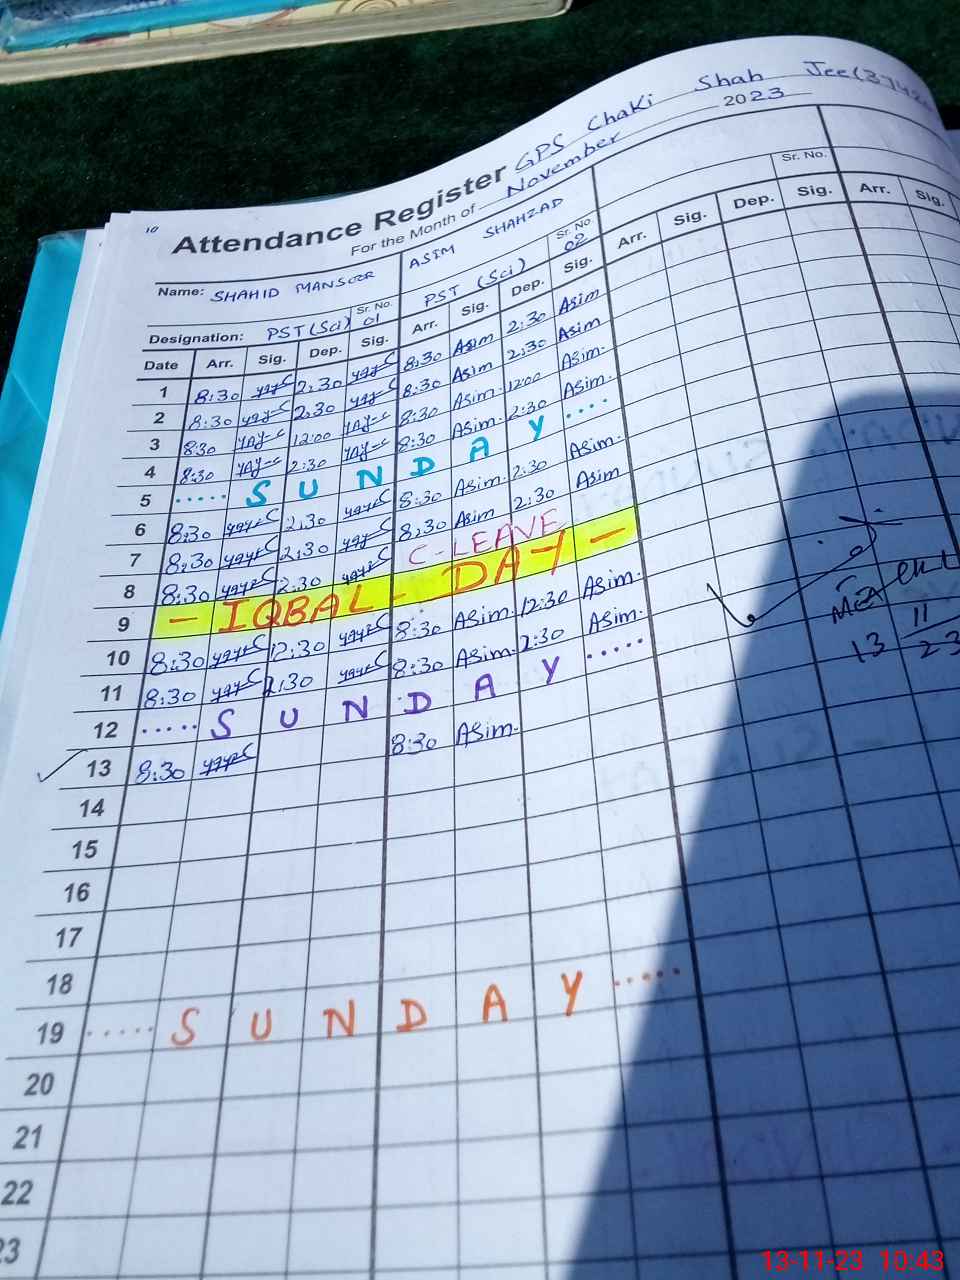 10
Attendance Register GPS Chaki Shah Jee (3742
For the Month of November 2023
Name: SHAHID MANSOOR ASIM SHAHZAD Sr. No.
Designation: PST (Sci) Sr. No. 01 PST (Sci) Sr. No. 02
Date Arr. Sig. Dep. Sig. Arr. Sig. Dep. Sig. Arr. Sig. Dep. Sig. Arr. Sig.
1 8:30 2:30 8:30 Asim 2:30 Asim
2 8:30 2:30 8:30 Asim 2:30 Asim
3 8:30 12:00 8:30 Asim. 12:00 Asim.
4 8:30 2:30 8:30 Asim. 2:30 Asim.
5 ..... S U N D A Y ....
6 8:30 2:30 8:30 Asim. 2:30 Asim.
7 8:30 2:30 8:30 Asim 2:30 Asim
8 8:30 2:30 C-LEAVE
9 - IQBAL - DAY -
10 8:30 12:30 8:30 Asim. 12:30 Asim.
11 8:30 2:30 8:30 Asim. 2:30 Asim.
12 ..... S U N D A Y .....
13 8:30 8:30 Asim.
14
15
16
17
18
19 ..... S U N D A Y .....
20
21
22
23
13 11 23
13-11-23 10:43